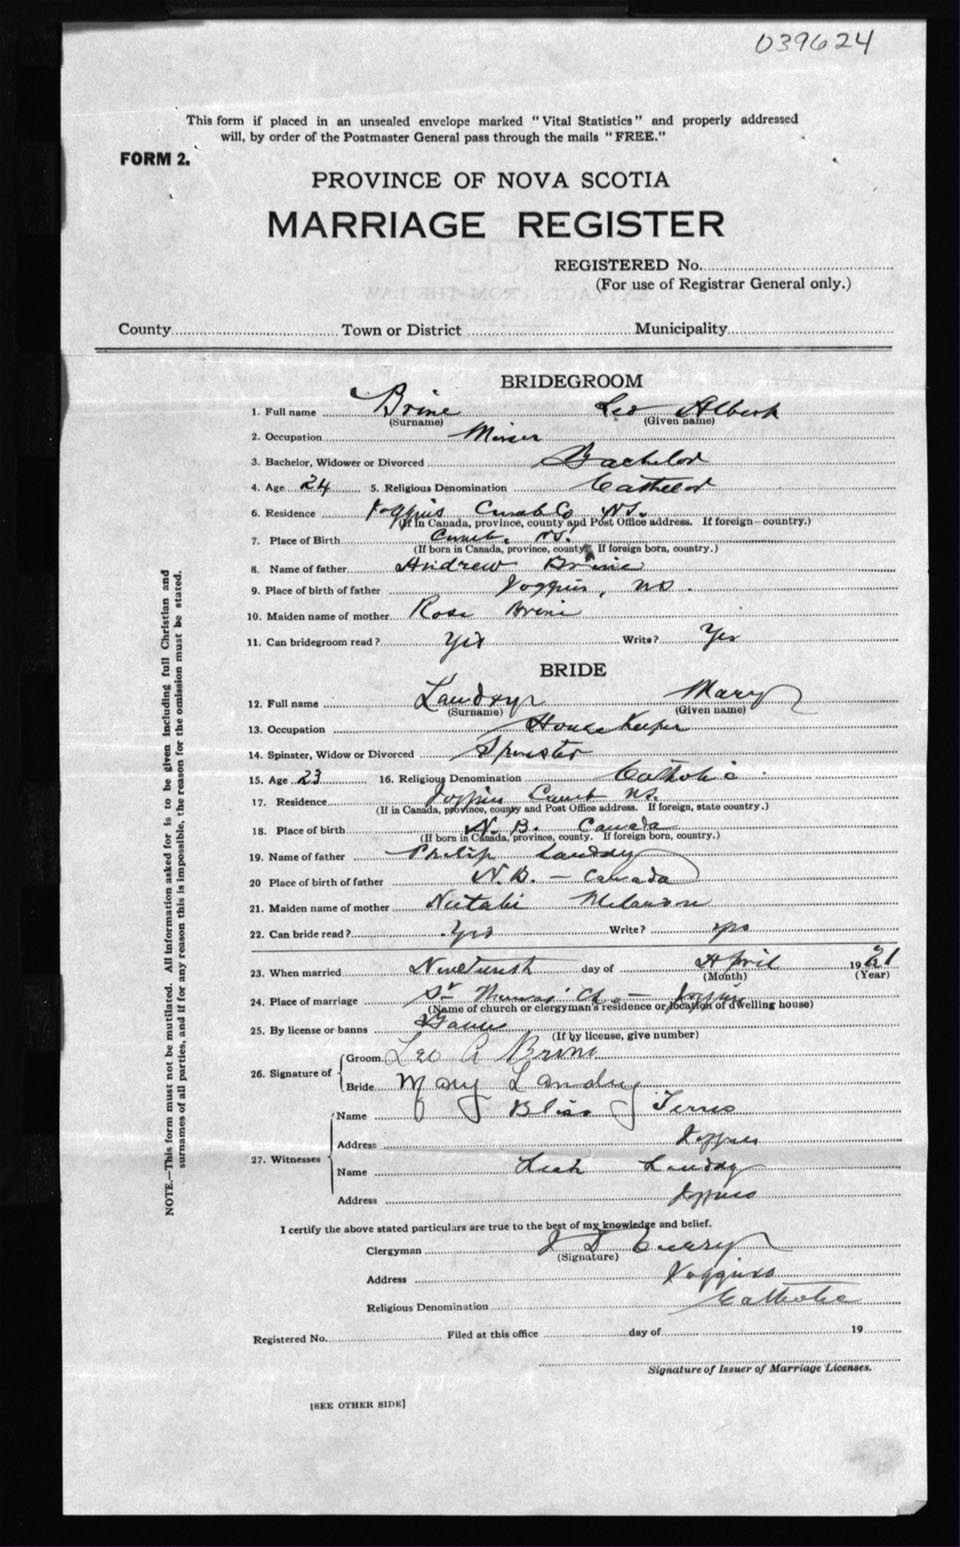 039624
This form if placed in an unsealed envelope marked "Vital Statistics" and properly addressed
will, by order of the Postmaster General pass through the mails "FREE."
FORM 2.
PROVINCE OF NOVA SCOTIA
MARRIAGE REGISTER
REGISTERED No.
(For use of Registrar General only.)
County Town or District Municipality
BRIDEGROOM
1. Full name Brine Leo Albert
(Surname) (Given name)
2. Occupation Miner
3. Bachelor, Widower or Divorced Bachelor
4. Age 24 5. Religious Denomination
6. Residence Joggins Cumb Co NS.
(If in Canada, province, county and Post Office address. If foreign—country.)
7. Place of Birth Cumb. NS.
(If born in Canada, province, county. If foreign born, country.)
8. Name of father Andrew Brine
9. Place of birth of father Joggins, NS.
10. Maiden name of mother Rose Brine
11. Can bridegroom read? Yes Write? Yes
BRIDE
12. Full name Landry Mary
(Surname) (Given name)
13. Occupation House Keeper
14. Spinster, Widow or Divorced Spinster
15. Age 23 16. Religious Denomination Catholic
17. Residence Joggins Cumb NS.
(If in Canada, province, county and Post Office address. If foreign, state country.)
18. Place of birth N.B. Canada
(If born in Canada, province, county. If foreign born, country.)
19. Name of father Philip Landry
20 Place of birth of father N.B. — Canada
21. Maiden name of mother Melanson
22. Can bride read? Yes Write? Yes
23. When married day of April 1921
(Month) (Year)
24. Place of marriage St Thomas' Ch. — Joggins
(Name of church or clergyman's residence or location of dwelling house)
25. By license or banns Banns
(If by license, give number)
26. Signature of Groom Leo A Brine
Bride Mary Landry
27. Witnesses Name Bliss
Address Joggins
Name Leah Landry
Address Joggins
I certify the above stated particulars are true to the best of my knowledge and belief.
Clergyman J D
(Signature)
Address Joggins
Religious Denomination Catholic
Registered No. Filed at this office day of 19
Signature of Issuer of Marriage Licenses.
[SEE OTHER SIDE]
NOTE.—This form must not be mutilated. All information asked for is to be given including full Christian and
surnames of all parties, and if for any reason this is impossible, the reason for the omission must be stated.